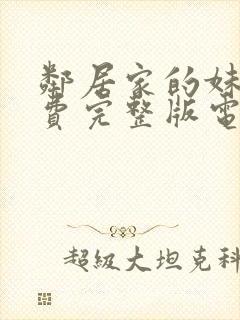 鄰居家的妹
費完整版電
超級大坦克科